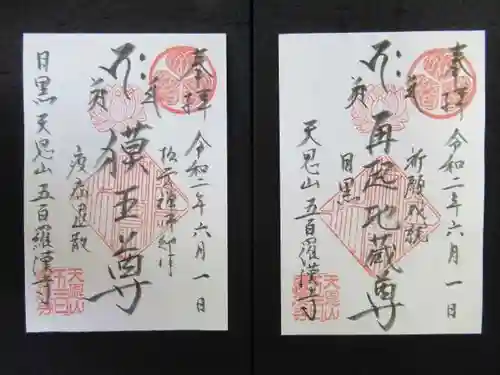 奉拝
令和二年六月一日
松雲禅師御作
獏王尊
疫病退散
目黒 天恩山 五百羅漢寺
奉拝
令和二年六月一日
祈願成就
再起地蔵尊
目黒
天恩山 五百羅漢寺